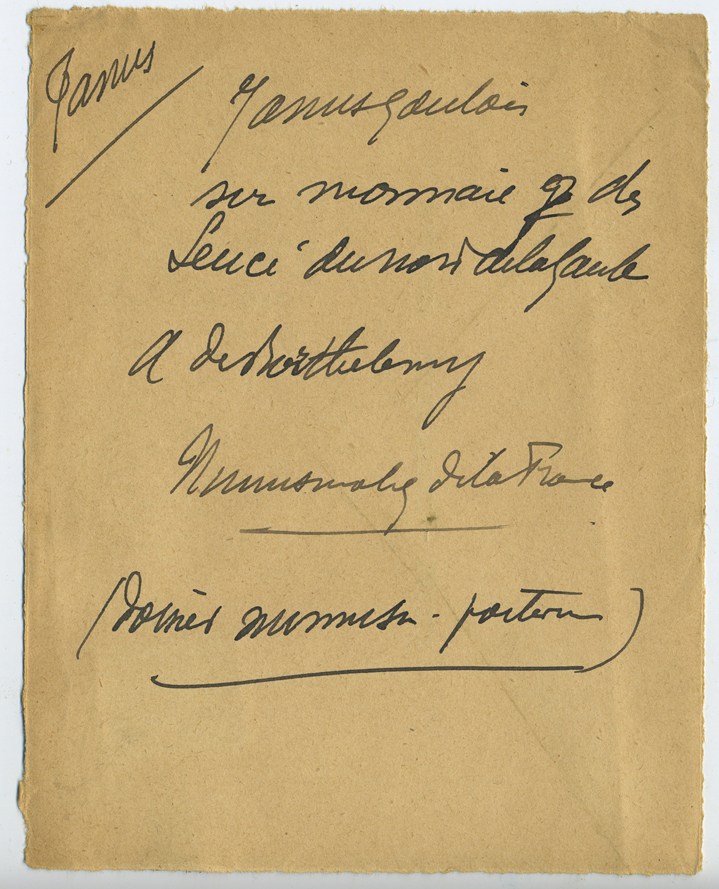 Janus
Janus gaulois
sur monnaie des
Leuci du nord de la Gaule
A de Barthelemy
Numismatiq de la France
(dossier numism-